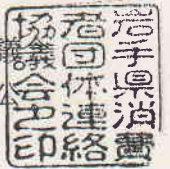 岩手県消費
者団体連絡
協議会之印